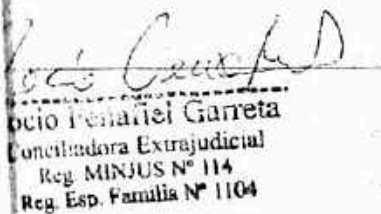 ocio Peñafiel Garreta
Conciliadora Extrajudicial
Reg. MINJUS Nº 114
Reg. Esp. Familia Nº 1104